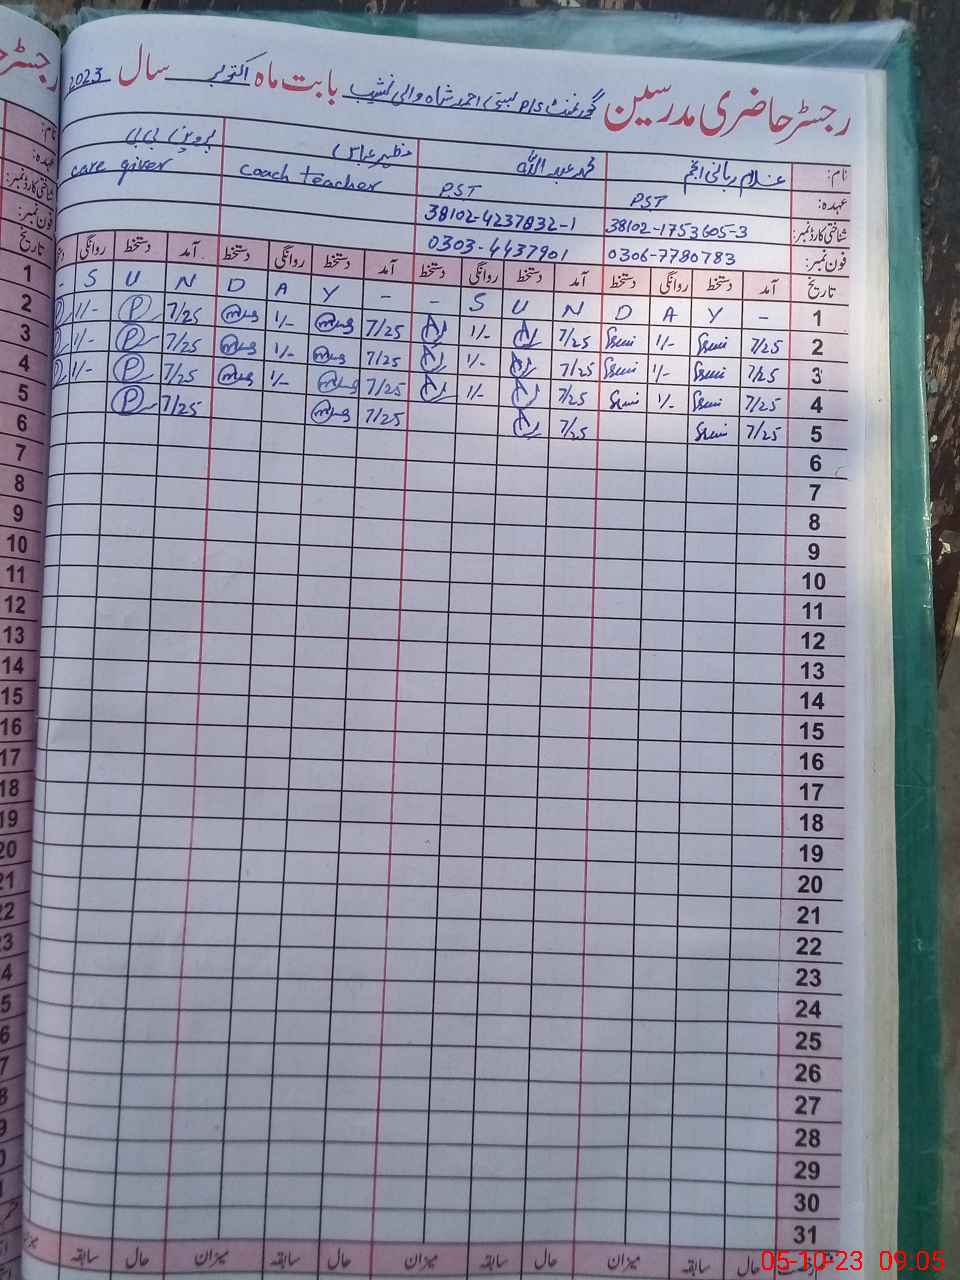 رجسٹر حاضری مدرسین گورنمنٹ P/S بستی احمد شاہ والی نشیب بابت ماہ اکتوبر سال 2023
نام: غلام ربانی انجم محمد عبداللہ مظہر عباس پروین بی بی
عہدہ: PST PST coach teacher care giver
شناختی کارڈ نمبر: 38102-1753605-3 38102-4237832-1
فون نمبر: 0306-7780783 0303-4437901
تاریخ آمد دستخط روانگی دستخط آمد دستخط روانگی دستخط آمد دستخط روانگی دستخط آمد دستخط روانگی دستخط
1 - Y A D N U S - - Y A D N U S -
2 7/25 1/- 7/25 1/- 7/25 1/- 7/25 P 1/-
3 7/25 1/- 7/25 1/- 7/25 1/- 7/25 P 1/-
4 7/25 1/- 7/25 1/- 7/25 1/- 7/25 P 1/-
5 7/25 7/25 7/25 7/25 P
6
7
8
9
10
11
12
13
14
15
16
17
18
19
20
21
22
23
24
25
26
27
28
29
30
31
حال سابقہ میزان حال سابقہ میزان حال سابقہ میزان حال سابقہ
05-10-23 09:05